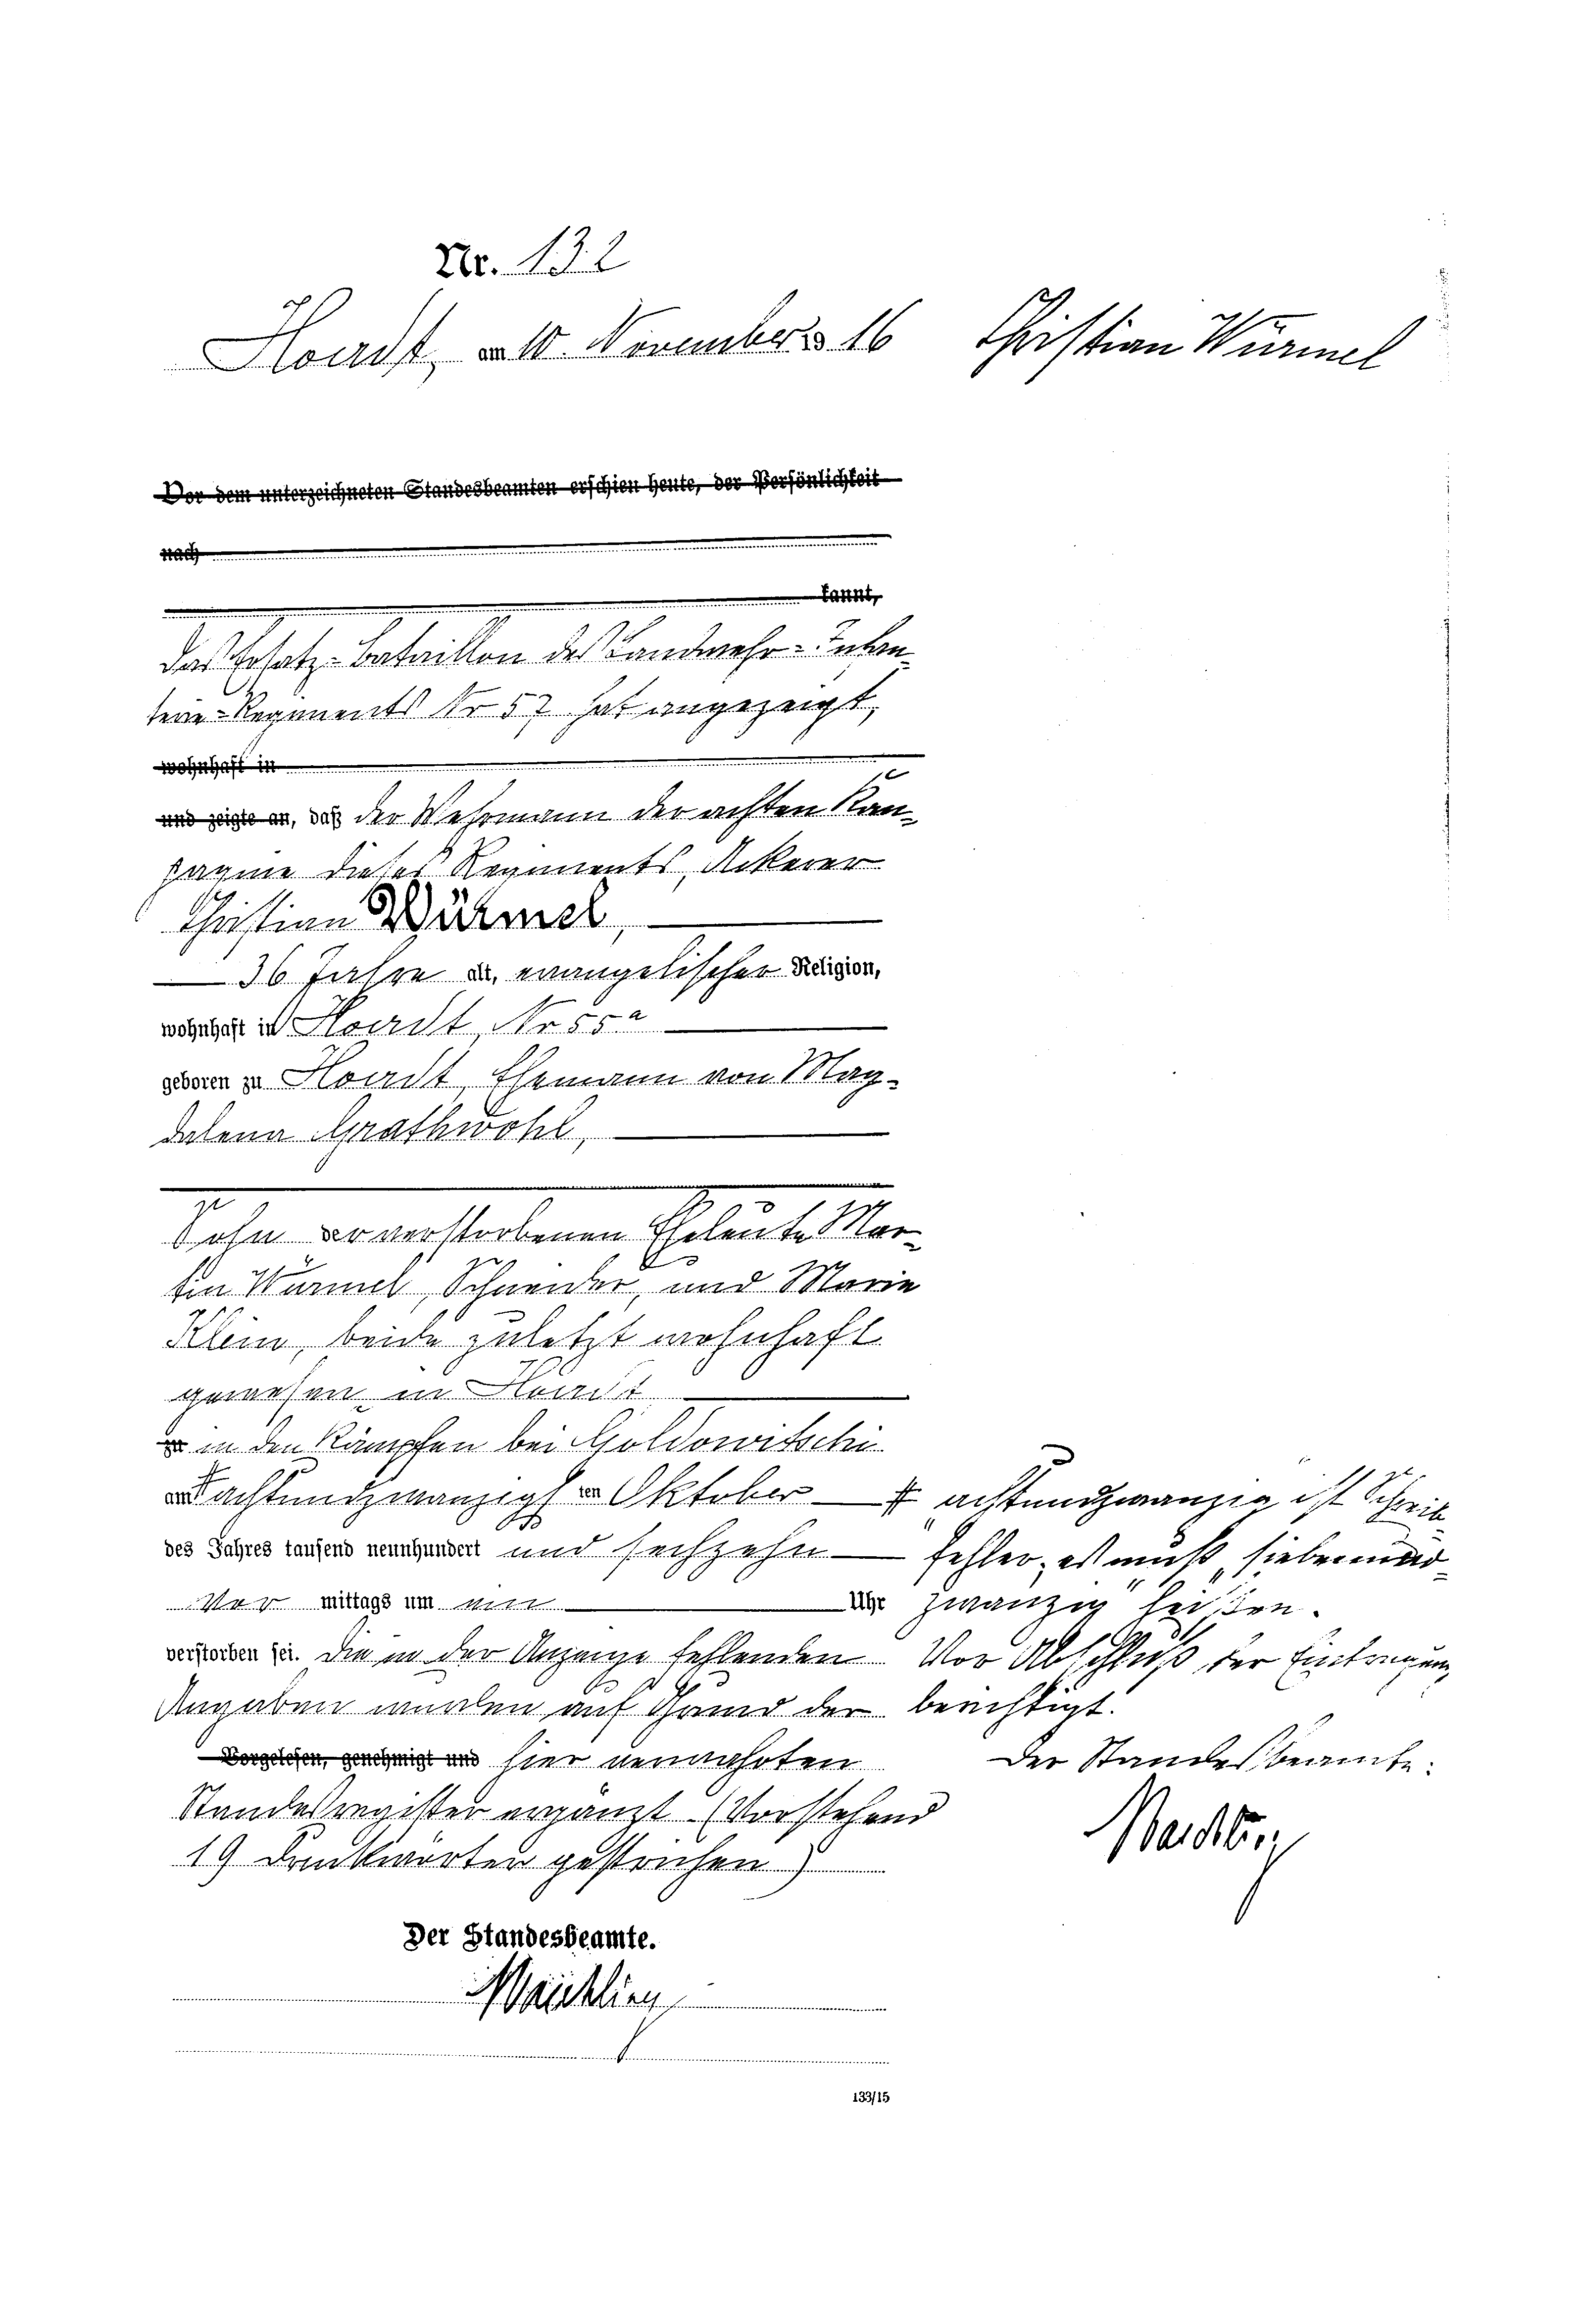 Nr. 132
Hoerdt, am 10. November 1916
Christian Würmel
Vor dem unterzeichneten Standesbeamten erschien heute, der Persönlichkeit
nach
kannt,
das Ersatz-Bataillon des Landwehr-Infan-
terie-Regiments Nr 57 hat angezeigt,
wohnhaft in
und zeigte an, daß der Wehrmann der achten Kom-
pagnie dieses Regiments, Ackerer
Christian Würmel,
36 Jahre alt, evangelischer Religion,
wohnhaft in Hoerdt, Nr 55a
geboren zu Hoerdt, Ehemann von Mag-
dalena Grathwohl,
Sohn der verstorbenen Eheleute Mar-
tin Würmel, Schneider, und Marie
Klein, beide zuletzt wohnhaft
gewesen in Hoerdt
zu in den Kämpfen bei Goldowitschi
am achtundzwanzigsten Oktober
des Jahres tausend neunhundert und sechzehn
Vor mittags um ein Uhr
verstorben sei. Die in der Anzeige fehlenden
Angaben wurden auf Grund der
Vorgelesen, genehmigt und hier verwahrten
Standesregister ergänzt. (Vorstehend
19 Druckwörter gestrichen)
Der Standesbeamte.
achtundzwanzig ist Schreib
fehler; es muß „siebenund-
zwanzig" heißen.
Vor Abschluß der Eintragung
berichtigt.
Der Standesbeamte:
133/15